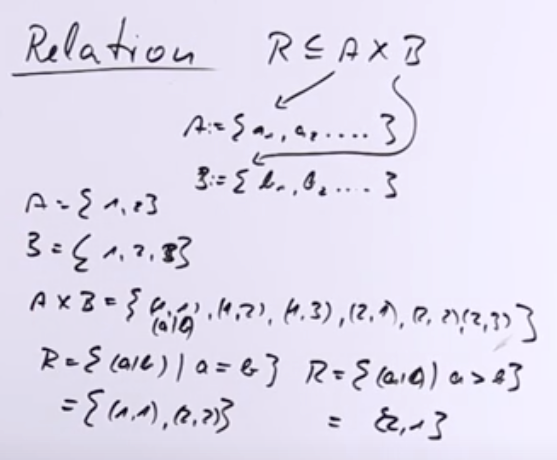 Relation R ⊆ A × B
A := {a₁, a₂ .... }
B := { b₁, b₂ .... }
A = { 1, 2}
B = { 1, 2, 3}
A × B = { (1,1), (1,2), (1,3), (2,1), (2,2)(2,3) }
(a|b)
R = { (a|b) | a = b } R = { (a|b) | a > b }
= { (1,1), (2,2)} = {2,1}